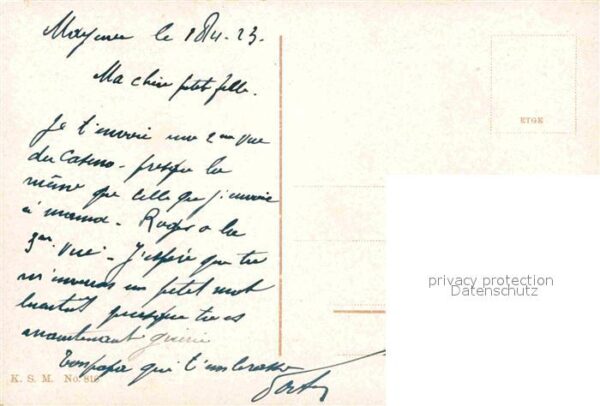 Mayence le 18/4.23.
Ma chère petite fille.
Je t'envoie une 2ème vue
du Casino - presque la
même que celle que j'envoie
à maman - Roger a la
3ème vue - J'espère que tu
m'enverras un petit mot
bientôt puisque tu es
maintenant guérie
Ton papa qui t'embrasse
K. S. M. No. 816
ETGE
privacy protection
Datenschutz